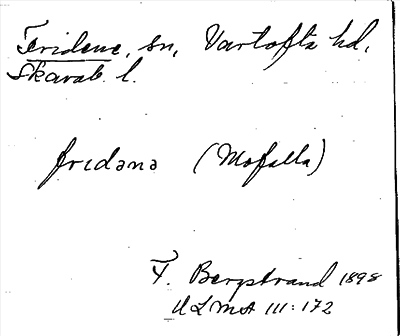 Fridene, sn, Vartofta hd,
Skarab. l.
fridənə (Mofalla)
F. Bergstrand 1898
ULMA III: 172